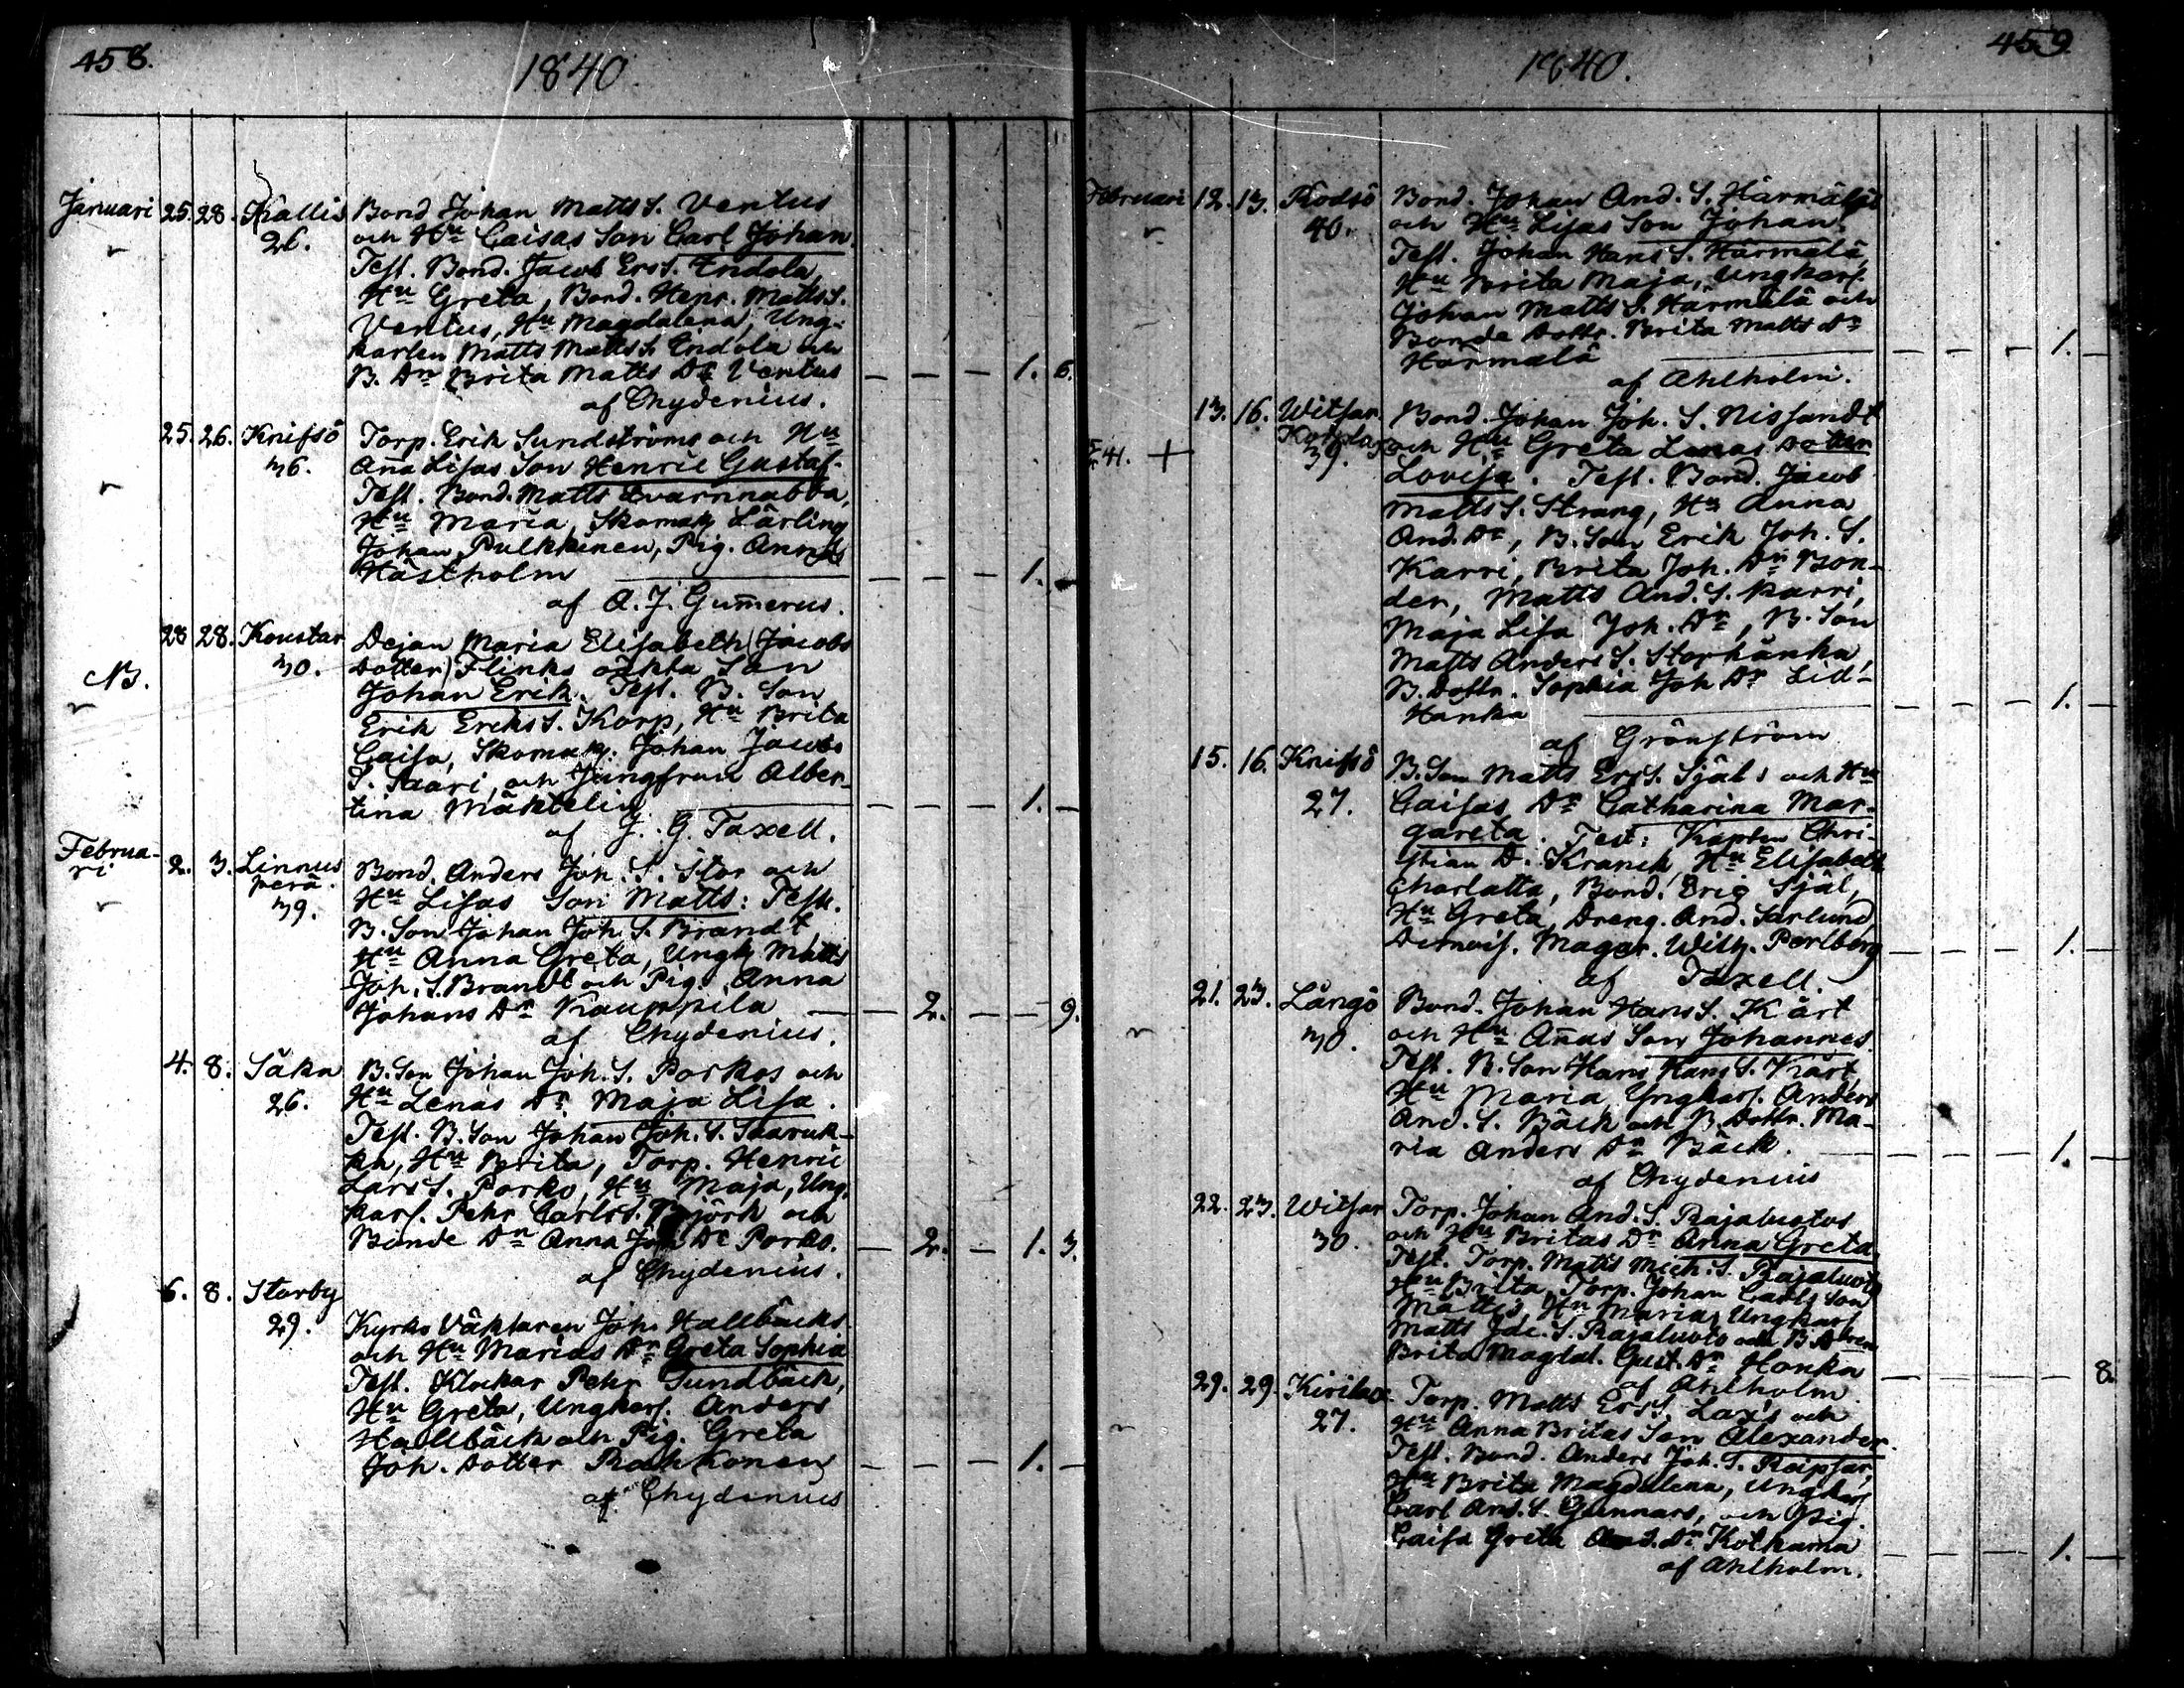 458.
1840.
Januari 25. 28. Kallis Bond Johan Matts S. Ventus
26. och Hu Caisas Son Carl Johan.
Test. Bond. Jacob Ers S. Endola,
Hu Greta, Bond. Henr. Matts S.
Ventus, Hu Magdalena, Ung-
karlen Matts Matts S. Endola och
B. Dn Brita Matts Dr Ventus — — — 1. 6.
af Chydenius.
25. 26. Knifsö Torp. Erik Sundströms och Hu
36. Aña Lisas Son Henric Gustaf.
Test. Bond. Matts Qvarnnabba,
Hu Maria, Skomak Lärling
Johan Pulkkinen, Pig. Anna
Hästholm — — — 1. —
af A. J. Gum̃erus.
28 28. Koustar Dejan Maria Elisabeth (Jacobs
30. dotter) Flinks oäkta Son
NB. Johan Erik. Test. B. Son
Erik Eriks S. Korp, Hu Brita
Caisa, Skomak. Johan Jacobs
S. Saari, och Jungfrun Alber-
tina Mäktelin — — — 1. —
af J. G. Taxell.
Februa-
ri 2. 3. Linnus Bond. Anders Joh. S. Stor och
perä. Hu Lisas Son Matts: Test.
39. B. Son Johan Joh. S. Brandt
Hu Anna Greta, Ungk Matts
Joh. S. Brandt och Pig. Anna
Johans Dr Kauppila — 2. — — 9.
af Chydenius.
4. 8. Säka B. Son Johan Joh. S. Porkos och
26. Hu Lenas Dr Maja Lisa.
Test. B. Son Johan Joh. S. Saaruk-
ka, Hu Brita, Torp. Henric
Lars S. Porko, Hu Maja, Ung.
karl. Pehr Carls S. Björk och
Bonde Dn Anna Joh Dr Porko. — 2. — 1. 3.
af Chydenius.
6. 8. Storby
29. Kyrko Väktaren Joh. Hallbäcks
och Hu Marias Dr Greta Sophia
Test. Klockar Pehr Sundbäck,
Hu Greta, Ungkarl. Anders
Hallbäck och Pig. Greta
Joh. Dotter Rahkonen — — — 1. —
af Chydenius
459
1840.
Februari 12. 13. Rodsö Bond. Johan And. S. Härmäläs
40. och Hu Lisas Son Johan.
Test. Johan Hans S. Härmälä,
Hu Brita Maja, Ungkarl.
Johan Matts S. Härmälä och
Bonde Dottr. Brita Matts Dr
Härmälä — — — 1. —
af Ahlholm.
13. 16. Witsar Bond. Johan Joh. S. Nissandt
41. + Korpla och Hu Greta Lenas Dotter
39. Lovisa. Test. Bond. Jacob
Matts S. Strang, Hu Anna
And. Dr, B. Son Erik Joh. S.
Karri, Brita Joh. Dr Bon-
der, Matts And. S. Karri,
Maja Lisa Joh. Dr, B. Son
Matts Anders S. Storhänka,
B. Dottr. Sophia Joh Dr Lid-
Hanka — — — 1. —
af Grönström
15. 16. Knifsö B. Son Matts Ers S. Själs och Hu
27. Caisas Dr Catharina Mar-
gareta. Test: Kapten Chri-
stian D. Kranck, Hu Elisabeth
Charlatta, Bond. Eric Själ,
Hu Greta, Dreng. And. Sarlund,
Demois. Magar. Wilh. Perlberg — — — 1. —
af Taxell.
21. 23. Långö Bond. Johan Hans S. Kärt
30. och Hu Añas Son Johannes.
Test. B. Son Hans Hans S. Kärt,
Hu Maria, Ungkarl. Anders
And. S. Bäck och B. Dottr. Ma-
ria Anders Dr Bäck. — — — 1. —
af Chydenius
22. 23. Witsar Torp. Johan And. S. Rajaluotos
30. och Hu Britas Dr Anna Greta.
Test. Torp. Matts Mich. S. Rajaluoto
Hu Brita, Torp. Johan Carls Son
Mattis, Hu Maria, Ungkarl.
Matts S. Rajaluoto och B. Dren
Brita Magdal. Gust. Dr Honka — — — — 8.
af Ahlholm
29. 29. Torp. Matts Ers S. Lax's och
27. Hu Anna Britas Son Alexander.
Test. Bond. Anders Joh. S. Ripsar,
Hu Brita Magdalena, Ungkarl
Carl And. S. Gunnars, och Pig.
Caisa Greta And. Dr Kotkama — — — 1. —
af Ahlholm.